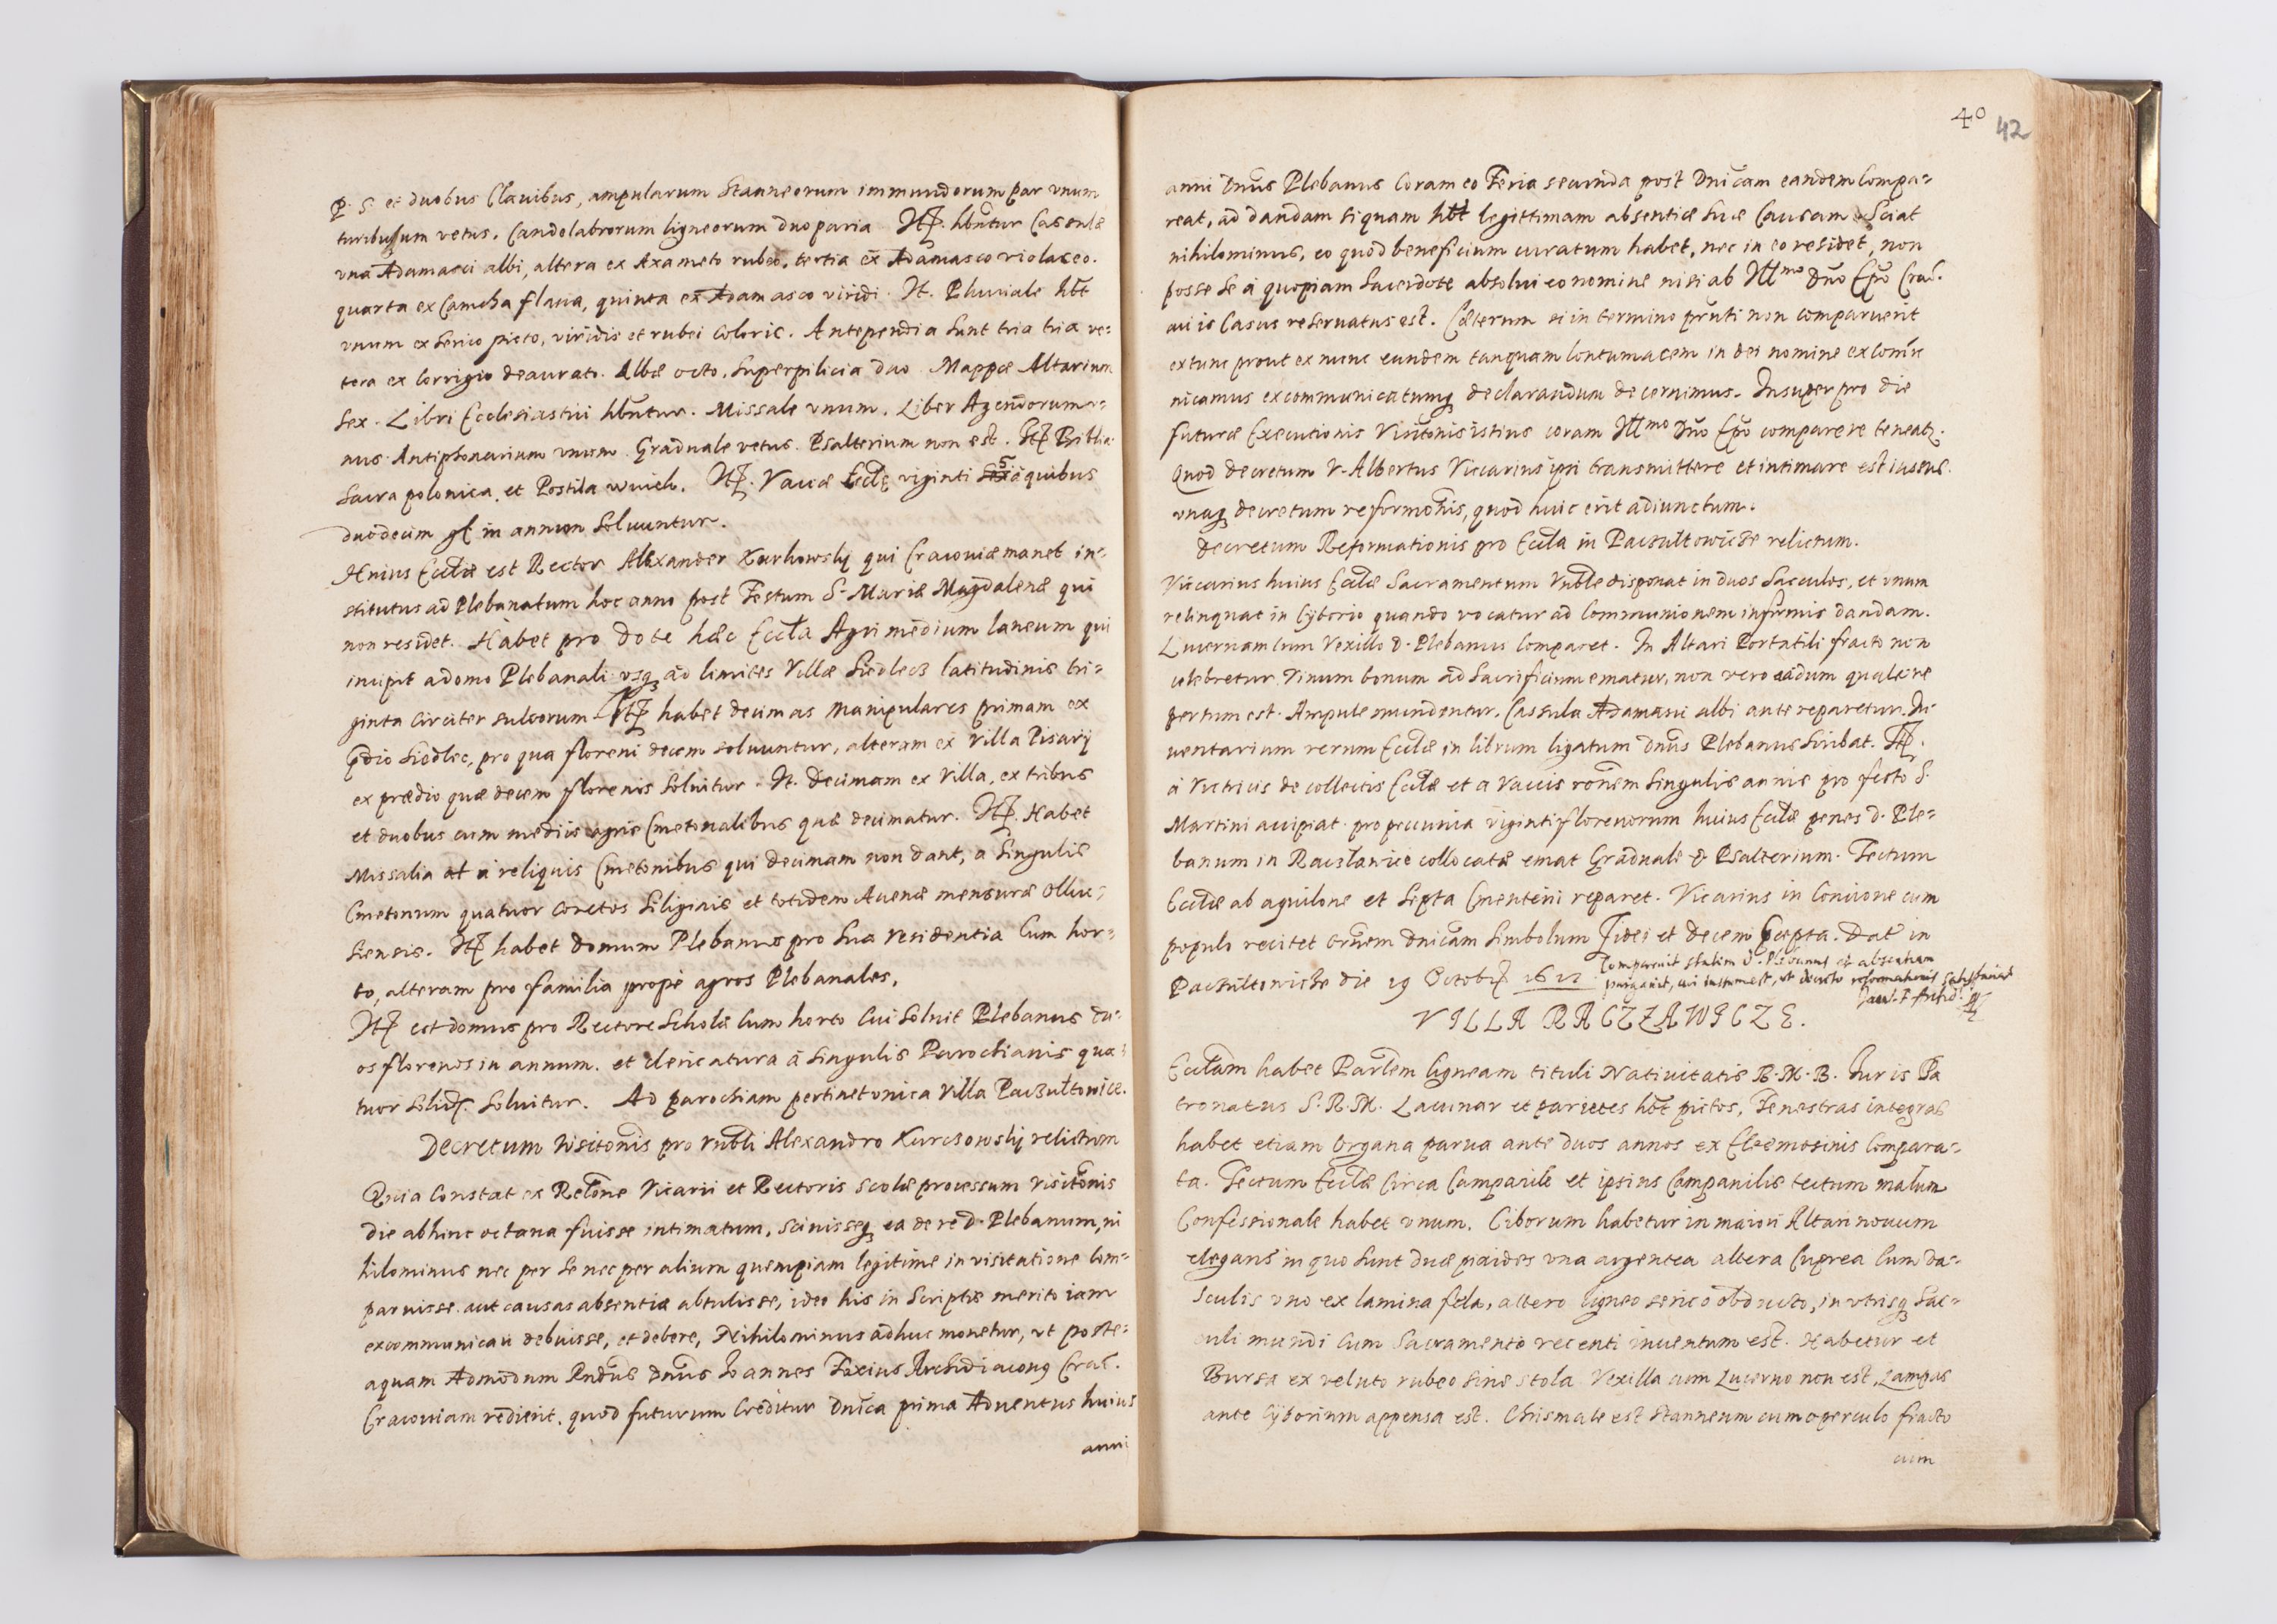 P. S. et duobus Clauibus, ampularum Stanneorum immundorum par vnum
turibulum vetus. Candelabrorum ligneorum duo paria It. hbntur Casulæ
vna Adamasci albi, altera ex Axameto rubeo, tertia ex Adamasco violaceo.
quarta ex Camcha flaua, quinta ex Adamasco viridi. It. Pluuiale hbt
vnum ex serico picto, viridis et rubei coloris. Antependia sunt tria tria ve=
tera ex Corrigio deaurato. Albæ octo. Superpilicia duo Mappæ Altarium
sex. Libri Ecclesiastici hbntur. Missale vnum. Liber Agendorum v=
nus Antiphonarium vnum Graduale vetus. Psalterium non est. It Biblia
Sacra polonica. et Postila wuiek. It. Vaccæ Eccle viginti 5 à quibus
duodecim gl in annum soluuntur.
Huius Ecclæ est Rector Alexander Karhowsky qui Cracouiæ manet in=
stitutus ad Plebanatum hoc anno post Festum S. Mariæ Magdalenæ qui
non residet. Habet pro dote hæc Eccla Agri medium laneum qui
incipit a domo Plebanali vsq ad limites Villæ Siedlecz latitudinis tri=
ginta circiter sulcorum It habet decimas Manipulares primam ex
pdio Siedlec, pro qua floreni decem soluuntur, alteram ex Villa Pisary
ex prædio quæ decem florenis soluitur. It. Decimam ex Villa, ex tribus
et duobus cum mediis agris Cmetonalibus quæ decimatur. It. Habet
Missalia at à reliquis Cmetonibus qui decimam non dant, a singulis
Cmetonum quatuor coretos siliginis et totidem Auenæ mensuræ Olku=
siensis. It habet domum Plebanus pro sua residentia Cum hor=
to, alteram pro familia propè agros Plebanales.
It est domus pro Rectore Scholæ Cum horto Cui soluit Plebanus du=
os florenos in annum. et clericatura à singulis Parochianis qua=
tuor solid. soluitur. Ad parochiam pertinet vnica Villa Paczultowice.
Decretum Visitonis pro Vnbli Alexandro Kurczowsky relictum
Quia Constat ex Relone Vicarii et Rectoris scolæ processum visitonis
die abhinc octaua fuisse intimatum, sciuisseq ea de re D. Plebanum, ni
hilominus nec per se nec per alium quempiam legitime in visitatione Com=
paruisse. aut causas absentiæ abtulisse, ideo his in Scriptis merito iam
excommunicari debuisse, et debere, Nihilominus adhuc monetur, vt poste=
aquam Admodum Rndus Dnus Ioannes Foxius Archidiaconq Crac.
Cracouiam redierit. quod futurum Creditur Dnica prima Aduentus huius
anni
40 42
anni Dnus Plebanus Coram eo Feria secunda post Dnicam eandem Compa=
reat, ad dandam si quam hbt legittimam absentiæ suæ Causam. Sciat
nihilominus, eo quod beneficium curatum habet, nec in eo residet, non
posse se à quopiam Sacerdote absolui eo nomine nisi ab Illmo Dno Epo Crac.
cui is Casus reseruatus est. Cæterum si in termino pnti non comparuerit
extunc prout ex nunc eundem tanquam Contumacem in dei nomine excomu
nicamus excommunicatumq declarandum decernimus. Insuper pro die
futuræ Executionis Visitonis istius coram Illmo Dno Epo comparere teneatr.
Quod decretum V. Albertus Viccarius ipsi transmittere et intimare est iussus.
vnaq decretum reformonis, quod huic erit adiunctum.
Decretum Reformationis pro Eccla in Paczultowicze relictum.
Viccarius huius Ecclæ Sacramentum Vnble disponat in duos sacculos, et vnum
relinquat in Cyborio quando vocatur ad Communionem infirmis dandam.
Lucernam cum Vexillo D. Plebanus Comparet. In Altari Portatili fracto non
celebretur. Vinum bonum ad Sacrificium ematur, non vero acidum quale re
pertum est. Ampule mundentur. Cassula Adamasci albi ante reparetur. In
uentarium rerum Ecclæ in librum ligatum Dnus Plebanus scribat. It.
à Victricis de collectis Ecclæ et a Vaccis ronem singulis annis pro festo S.
Martini accipiat. pro pecunia viginti florenorum huius Ecclæ penes D. Ple=
banum in Raczlawice collocatæ emat Graduale & Psalterium. Tectum
Ecclæ ab aquilone et septa Cmenterii reparet. Vicarius in Concione cum
populo recitet ornem Dnicam Simbolum Fidei et decem Pcepta. Dat in
Paczultowicze die 19 Octobr 1612
Comparuit statim D. Plebanus et absentiam
purgauit, cui iniunctum est, vt decreto reformationis satisfaciat
VILLA RACZZAWICZE.
Ecclam habet Parlem ligneam tituli Natiuitatis B. M. B. Iuris Pa
tronatus S. R. M. Lacunar et parietes hbt pictos, Fenestras integras
habet etiam Organa parua ante duos annos ex Eleemosinis Compara=
ta. Tectum Ecclæ Circa Campanile et ipsius Campanilis tectum malum
Confessionale habet vnum. Ciborum habetur in maiori Altari nouum
elegans in quo sunt duæ pixides vna argentea altera Cuprea Cum va=
sculis vno ex lamina fcla, altero ligneo serico obducto, in vtrisq Sac=
culi mundi Cum Sacramento recenti inuentum est. Habetur et
Bursa ex veluto rubeo sine stola Vexilla cum Lucerno non est, Lampas
ante Cyborium appensa est. Chrismale est stanneum cum operculo fracto
cum